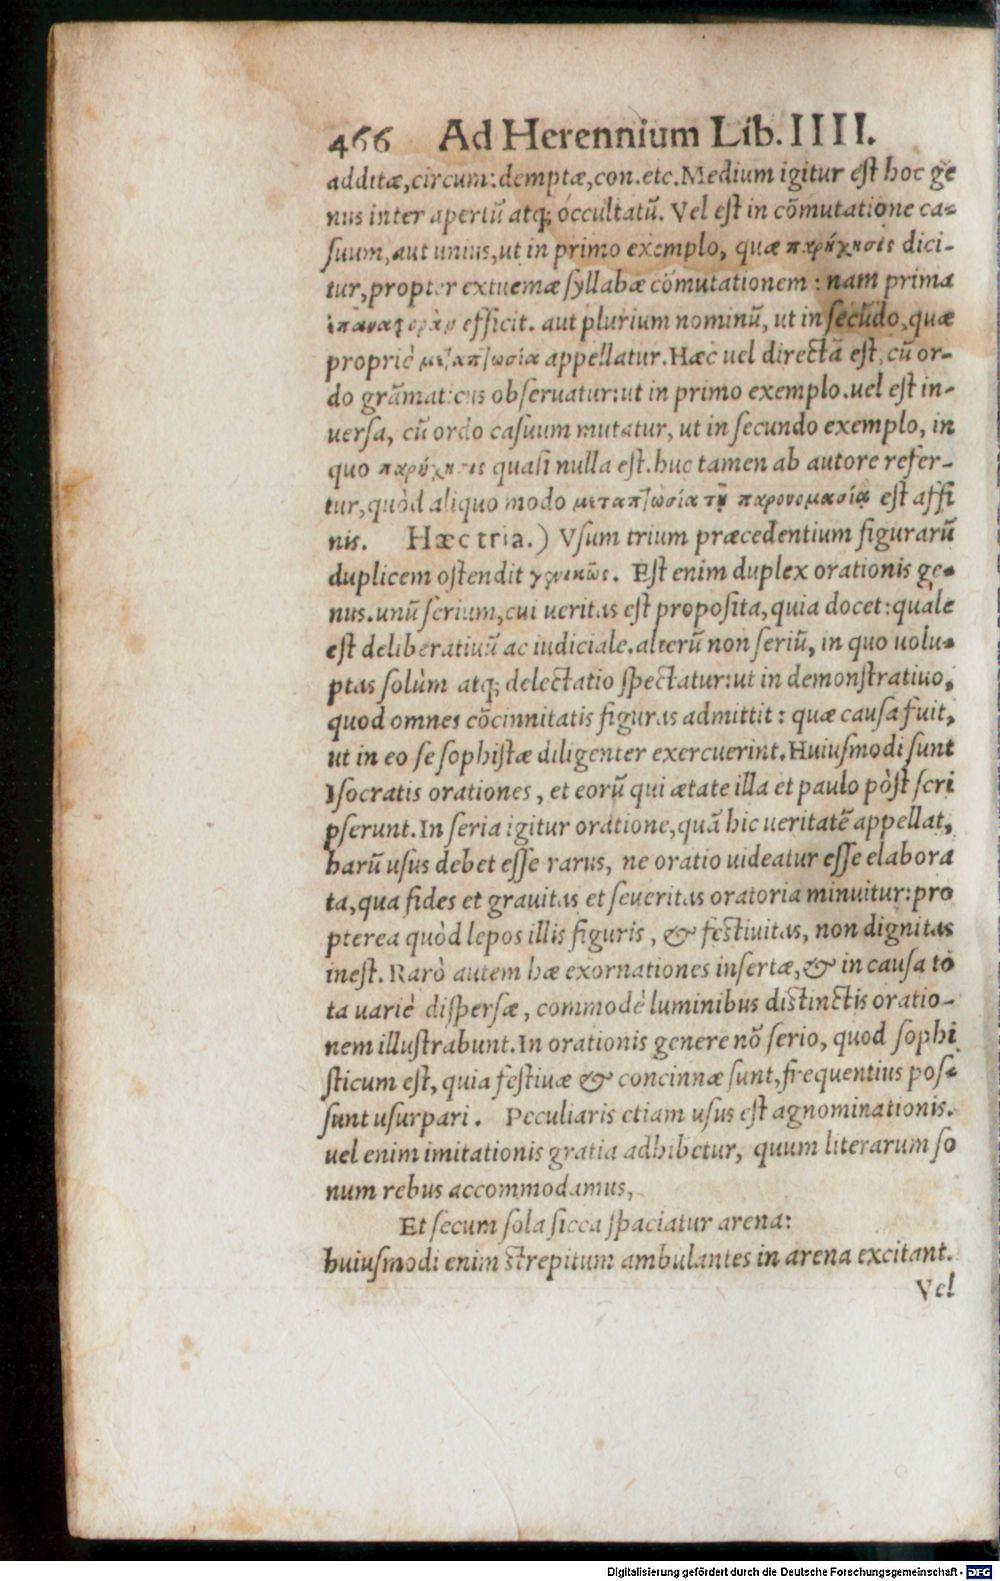 466 Ad Herennium Lib. IIII.
additæ,circum:demptæ,con.etc.Medium igitur eſt hoc ge
nus inter apertũ atq; occultatũ. Vel eſt in cõmutatione ca-
ſuum,aut unius,ut in primo exemplo, quæ παρήχησις dici-
tur,propter extremæ ſyllabæ cõmutationem : nam prima
ἐπαναφορὰν efficit. aut plurium nominũ, ut in ſecũdo,quæ
propriè μεταπτωσία appellatur.Hæc uel directã eſt, cũ or-
do grãmaticus obſeruatur:ut in primo exemplo.uel eſt in-
uerſa, cũ ordo caſuum mutatur, ut in ſecundo exemplo, in
quo παρήχησις quaſi nulla eſt.huc tamen ab autore refer-
tur,quòd aliquo modo μεταπτωσία τῇ παρονομασίᾳ eſt affi
nis. Hæc tria.) Vſum trium præcedentium figurarũ
duplicem oſtendit γενικῶς. Eſt enim duplex orationis ge-
nus.unũ ſerium,cui ueritas eſt propoſita,quia docet:quale
eſt deliberatiuũ ac iudiciale.alterũ non ſeriũ, in quo uolu-
ptas ſolùm atq; delectatio ſpectatur:ut in demonſtratiuo,
quod omnes cõcinnitatis figuras admittit : quæ cauſa fuit,
ut in eo ſe ſophiſtæ diligenter exercuerint.Huiuſmodi ſunt
Iſocratis orationes, et eorũ qui ætate illa et paulo pòſt ſcri
pſerunt.In ſeria igitur oratione,quã hic ueritatẽ appellat,
harũ uſus debet eſſe rarus, ne oratio uideatur eſſe elabora
ta,qua fides et grauitas et ſeueritas oratoria minuitur:pro
pterea quòd lepos illis figuris, & feſtiuitas, non dignitas
ineſt. Rarò autem hæ exornationes inſertæ,& in cauſa to
ta uariè diſperſæ, commodè luminibus diſtinctis oratio-
nem illuſtrabunt.In orationis genere nõ ſerio, quod ſophi
ſticum eſt, quia feſtiuæ & concinnæ ſunt,frequentius poſ-
ſunt uſurpari. Peculiaris etiam uſus eſt agnominationis.
uel enim imitationis gratia adhibetur, quum literarum ſo
num rebus accommodamus,
Et ſecum ſola ſicca ſpaciatur arena:
huiuſmodi enim ſtrepitum ambulantes in arena excitant.
Vel
Digitalisierung gefördert durch die Deutsche Forschungsgemeinschaft - DFG